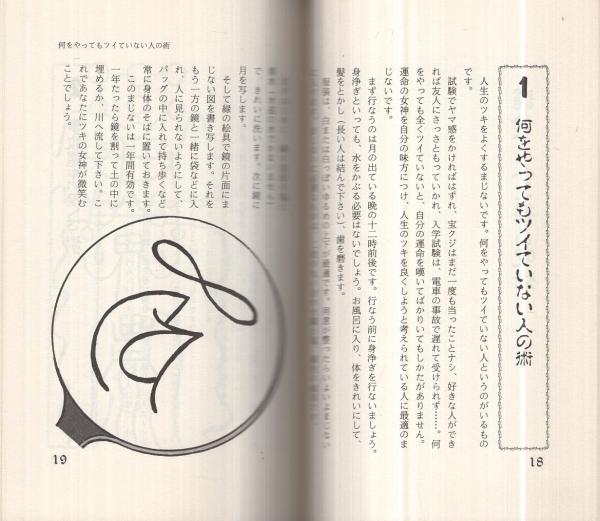 1 何をやってもツイていない人の術
人生のツキをよくするまじないです。何をやってもツイていない人というのがいるもの
です。
試験でヤマ感をかければはずれ、宝クジはまだ一度も当ったことナシ、好きな人ができ
れば友人にさっさともっていかれ、入学試験は、電車の事故で遅れて受けられず……。何
をやっても全くツイていないと、自分の運命を嘆いてばかりいてもしかたがありません。
運命の女神を自分の味方につけ、人生のツキを良くしようと考えられている人に最適のま
まず行なうのは月の出ている晩の十二時前後です。行なう前に身浄ぎを行ないましょう。
身浄ぎといっても、水をかぶる必要はないでしょう。お風呂に入り、体をきれいにして、
髪をとかし(長い人は結んで下さい)、歯を磨きます。
服装は、白または白っぽいゆるめの上下が最適です。用意が整ったらいよいよまじない
18
何をやってもツイていない人の術
で、きれいに洗います。次に鏡に
月を写します。
そして緑の絵具で鏡の片面にま
じない図を書き写します。それを
もう一方の鏡と一緒に袋などに入
れ、人に見られないようにして、
バッグの中に入れて持ち歩くなど
常に身体のそばに置いておきます。
このまじないは一年間有効です。
一年たったら鏡を割って土の中に
埋めるか、川へ流して下さい。こ
れであなたにツキの女神が微笑む
ことでしょう。
19